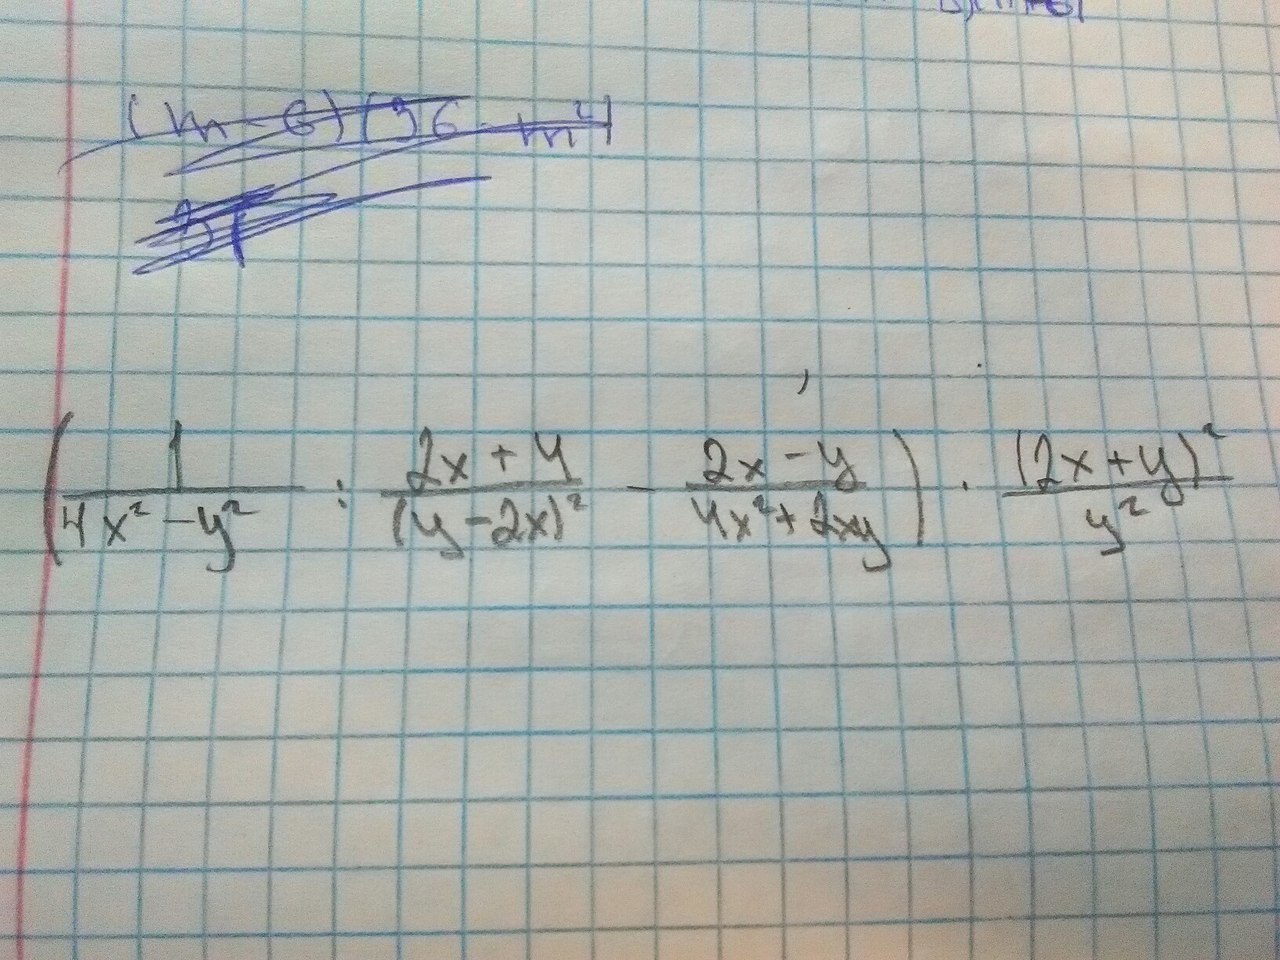 (m-6)(36-m²)
(1/(4x²-y²) : (2x+y)/(y-2x)² - (2x-y)/(4x²+2xy)) · (2x+y)²/y²